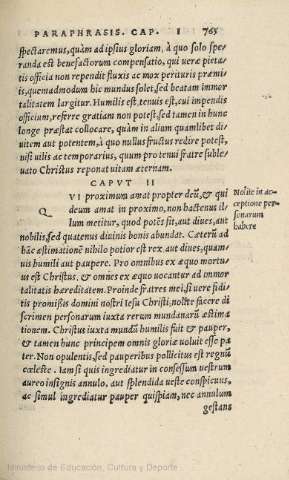 PARAPHRASIS. CAP. I 765
spectaremus, quàm ad ipsius gloriam, à quo solo spe-
randa est benefactorum compensatio, qui uerè pieta-
tis officia non rependit fluxis ac mox perituris præmi-
is, quemadmodum hic mundus solet, sed beatam immor
talitatem largitur. Humilis est, tenuis est, cui impendis
officium, referre gratiam non potest, sed tamen in hunc
longe præstat collocare, quàm in alium quamlibet di-
uitem aut potentem, à quo nullus fructus redire potest,
nisi uilis ac temporarius, quum pro tenui fratre suble-
uato Christus reponat uitam æternam.
CAPVT II
QVI proximum amat propter deũ, & qui
deum amat in proximo, non hactenus il-
lum metitur, quod potẽs sit, aut diues, aut
nobilis, sed quatenus diuinis bonis abundat. Cæterũ ad
hãc æstimationẽ nihilo potior est rex aut diues, quam
uis humili aut paupere. Pro omnibus ex æquo mortu-
us est Christus, & omnes ex æquo uocantur ad immor
talitatis hæreditatem. Proinde fratres mei, si uere fidi-
tis promissis domini nostri Iesu Christi, nolite facere di
scrimen personarum iuxta rerum mundanarũ æstima-
tionem. Christus iuxta mundũ humilis fuit & pauper,
& tamen hunc principem omnis gloriæ uoluit esse pa
ter. Non opulentis, sed pauperibus pollicitus est regnũ
cæleste. Iam si quis ingrediatur in consessum uestrum
aureo insignis annulo, aut splendida ueste conspicuus,
ac simul ingrediatur pauper quispiam, nec annulum
gestans
Nolite in ac-
ceptione per
sonarum
habere
Ministerio de Educación, Cultura y Deporte